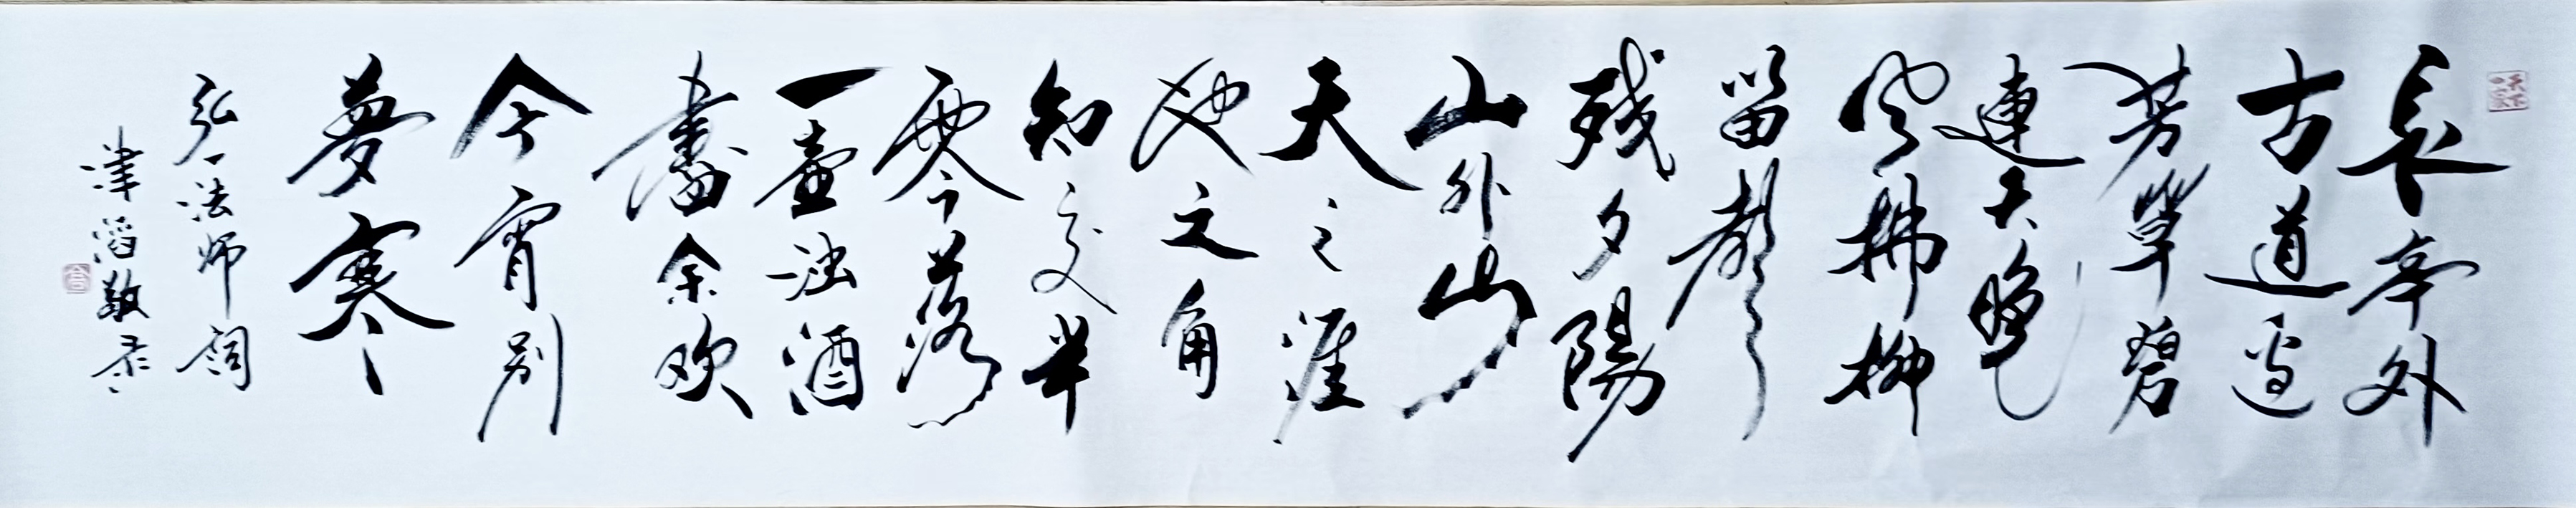 長亭外
古道邊
芳草碧
連天晚
风拂柳
笛聲
残夕陽
山外山
天之涯
地之角
知交半
零落
一壺浊酒
盡余欢
今宵别
夢寒
弘一法师词
津滔敬录